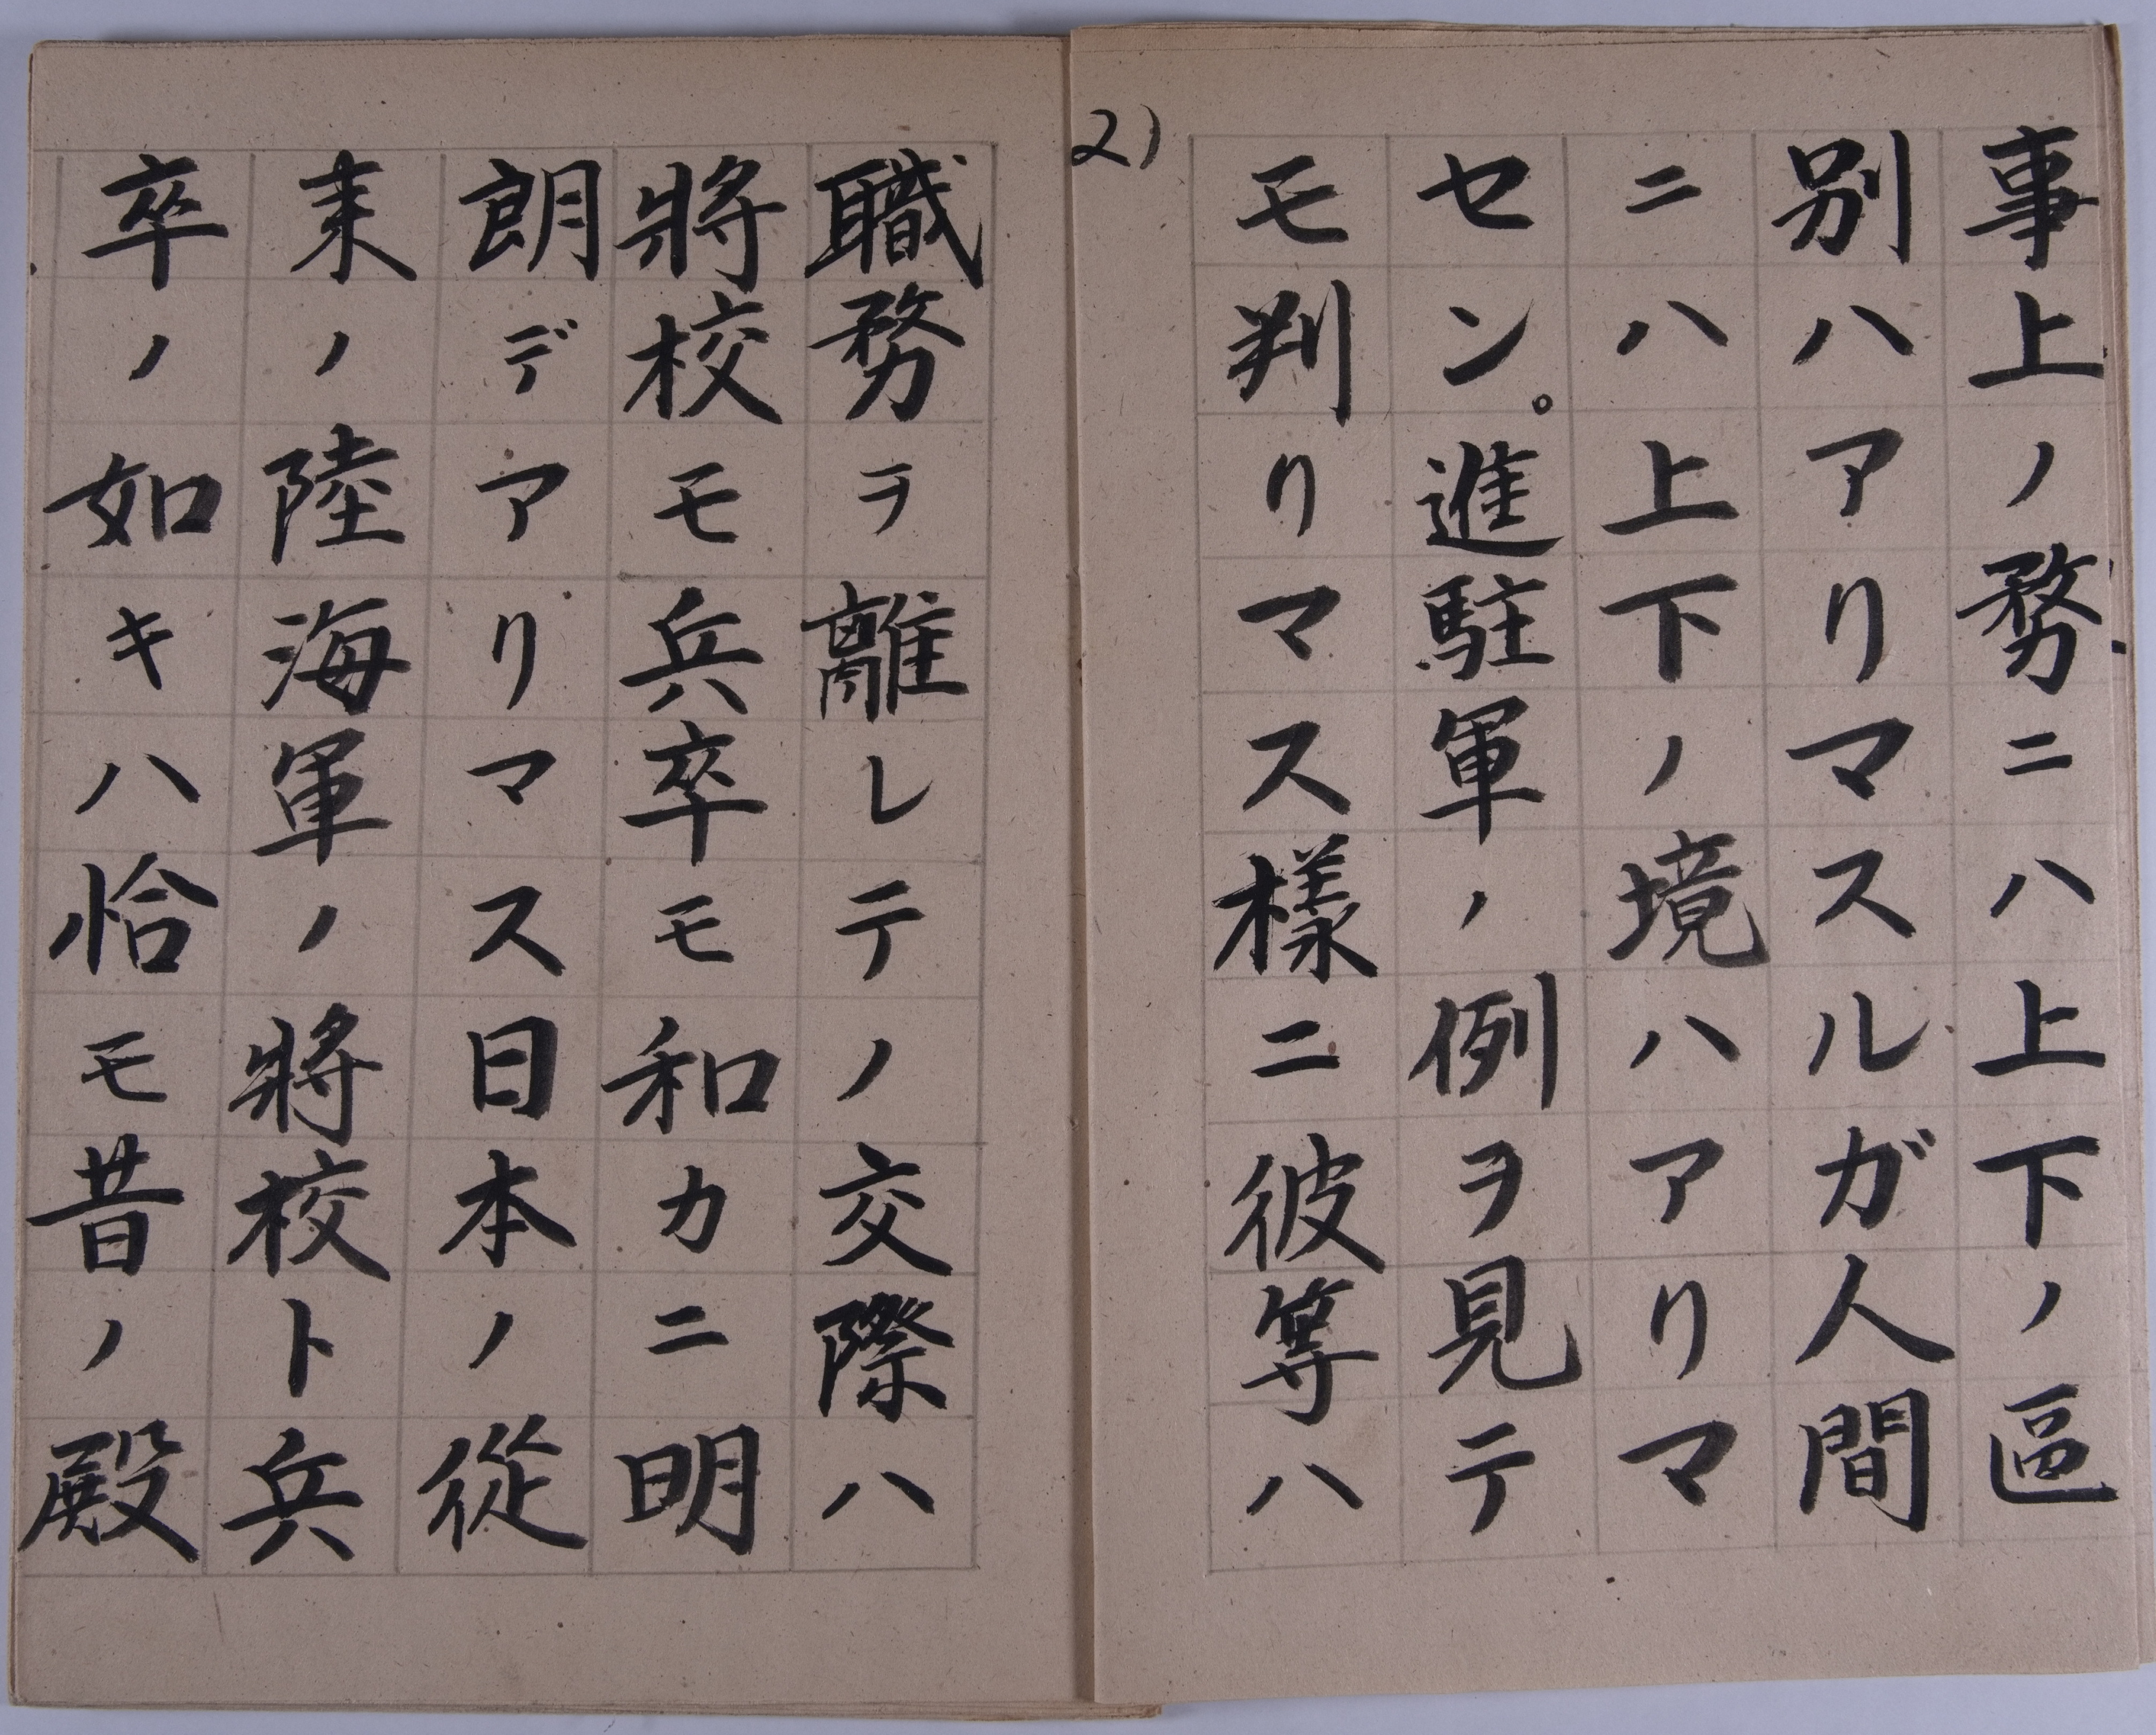 事上ノ務ニハ上下ノ區
別ハアリマスルガ人間
ニハ上下ノ境ハアリマ
セン。進駐軍ノ例ヲ見テ
モ判リマス様ニ彼等ハ
2)
職務ヲ離レテノ交際ハ
將校モ兵卒モ和カニ明
朗デアリマス日本ノ從
来ノ陸海軍ノ將校ト兵
卒ノ如キハ恰モ昔ノ殿